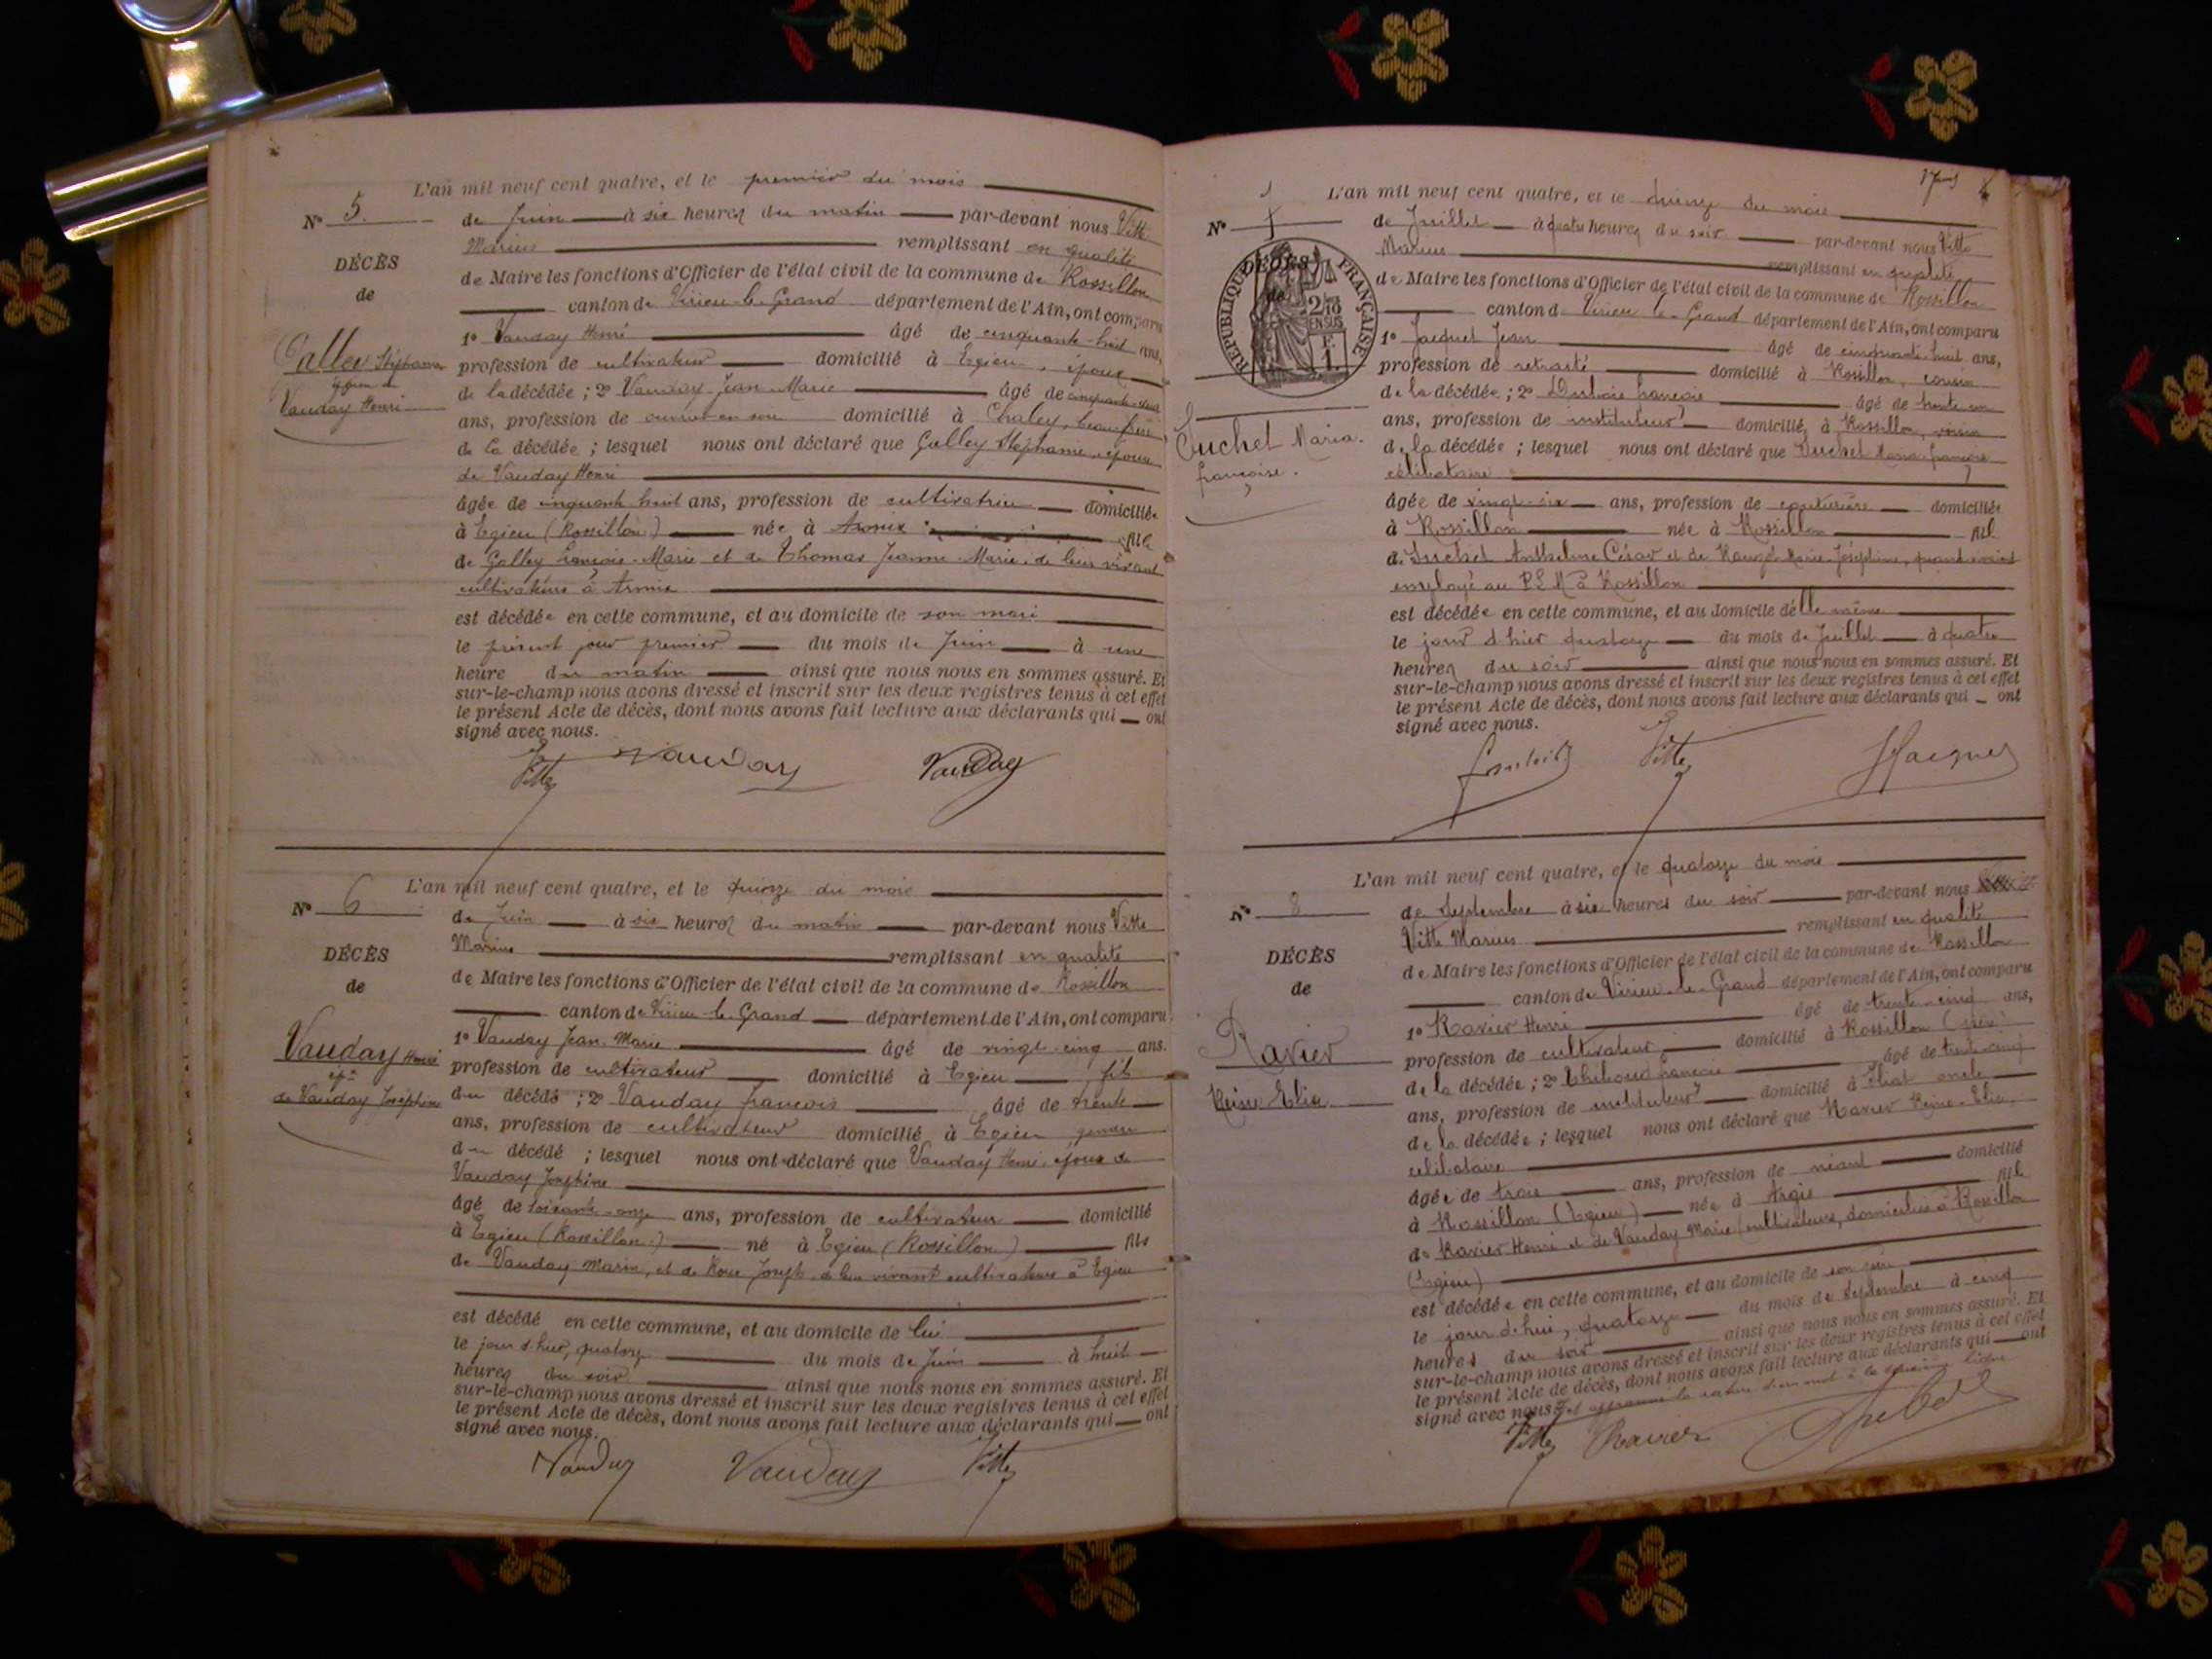 L'an mil neuf cent quatre, et le premier du mois
N° 5.
de Juin à six heures du matin par-devant nous Vitte
Marius remplissant en qualité
DÉCÈS
de Maire les fonctions d'Officier de l'état civil de la commune de Rossillon
de
canton de Virieu-le-Grand département de l'Ain, ont comparu
1° Vauday Henri âgé de cinquante-huit ans,
Galley Stéphanie
profession de cultivateur domicilié à Egieu, époux
Vauday Henri
de la décédée ; 2° Vauday Jean-Marie âgé de
ans, profession de ouvrier en soie domicilié à Chaley, beau-frère
de la décédée ; lesquel nous ont déclaré que Galley Stéphanie, épouse
de Vauday Henri
âgée de cinquante huit ans, profession de cultivatrice domiciliée
à Egieu (Rossillon) née à Armix fille
de Galley François-Marie et de Thomas Jeanne-Marie, de leur vivant
cultivateurs à Armix
est décédée en cette commune, et au domicile de son mari
le présent jour premier du mois de Juin à une
heure du matin ainsi que nous nous en sommes assuré. Et
sur-le-champ nous avons dressé et inscrit sur les deux registres tenus à cet effet
le présent Acte de décès, dont nous avons fait lecture aux déclarants qui ont
signé avec nous.
Vitte Vauday Vauday
L'an mil neuf cent quatre, et le quinze du mois
N° 6
de Juin à six heures du matin par-devant nous Vitte
Marius remplissant en qualité
DÉCÈS
de Maire les fonctions d'Officier de l'état civil de la commune de Rossillon
de
canton de Virieu-le-Grand département de l'Ain, ont comparu
1° Vauday Jean-Marie âgé de vingt-cinq ans.
Vauday Henri
profession de cultivateur domicilié à Egieu fils
épx
de Vauday Joséphine
du décédé ; 2° Vauday François âgé de trente
ans, profession de cultivateur domicilié à Egieu gendre
du décédé ; lesquel nous ont déclaré que Vauday Henri, époux de
Vauday Joséphine
âgé de soixante-onze ans, profession de cultivateur domicilié
à Egieu (Rossillon.) né à Egieu (Rossillon) fils
de Vauday Marin, et de Roux Joseph de leur vivant cultivateurs à Egieu
est décédé en cette commune, et au domicile de lui
le jour d'hier, quatorze du mois de Juin à huit
heures du soir ainsi que nous nous en sommes assuré. Et
sur-le-champ nous avons dressé et inscrit sur les deux registres tenus à cet effet
le présent Acte de décès, dont nous avons fait lecture aux déclarants qui ont
signé avec nous.
Vauday Vauday Vitte
L'an mil neuf cent quatre, et le quinze du mois
N° 7
de Juillet à quatre heures du soir par-devant nous Vitte
Marius remplissant en qualité
DÉCÈS
de
RÉPUBLIQUE FRANÇAISE
2/10 EN SUS
F. 1.
de Maire les fonctions d'Officier de l'état civil de la commune de Rossillon
canton de Virieu-le-Grand département de l'Ain, ont comparu
1° Jacquet Jean âgé de cinquante-huit ans,
profession de retraité domicilié à Rossillon, cousin
de la décédée ; 2° Dubois François âgé de trente-un
ans, profession de instituteur domicilié à Rossillon, voisin
Suchet Maria-
françoise.
de la décédée ; lesquel nous ont déclaré que Suchet Maria-françoise
célibataire
âgée de vingt-six ans, profession de couturière domiciliée
à Rossillon née à Rossillon fille
de Suchet Anthelme César et de Marie Joséphine, quand vivait
employé au P.L.M à Rossillon
est décédée en cette commune, et au domicile d'elle même
le jour d'hier quatorze du mois de Juillet à quatre
heures du soir ainsi que nous nous en sommes assuré. Et
sur-le-champ nous avons dressé et inscrit sur les deux registres tenus à cet effet
le présent Acte de décès, dont nous avons fait lecture aux déclarants qui ont
signé avec nous.
Vitte
L'an mil neuf cent quatre, et le quatorze du mois
N° 8
de Septembre à six heures du soir par-devant nous
Vitte Marius remplissant en qualité
DÉCÈS
de Maire les fonctions d'Officier de l'état civil de la commune de Rossillon
de
canton de Virieu-le-Grand département de l'Ain, ont comparu
1° Ravier Henri âgé de trente-cinq ans,
Ravier
profession de cultivateur domicilié à Rossillon (père)
Reine-Elia
de la décédée ; 2° François âgé de trente-cinq
ans, profession de instituteur domicilié à oncle
de la décédée ; lesquel nous ont déclaré que Ravier Reine-Elia,
célibataire
âgée de trois ans, profession de néant domicilié
à Rossillon (Egieu) née à Argis fille
de Ravier Henri et de Vauday Marie, cultivateurs, domiciliés à Rossillon
(Egieu)
est décédée en cette commune, et au domicile de son père
le jour d'hui, quatorze du mois de Septembre à cinq
heures du soir ainsi que nous nous en sommes assuré. Et
sur-le-champ nous avons dressé et inscrit sur les deux registres tenus à cet effet
le présent Acte de décès, dont nous avons fait lecture aux déclarants qui ont
signé avec nous et approuvé la rature d'un mot à la deuxième ligne
Vitte Ravier